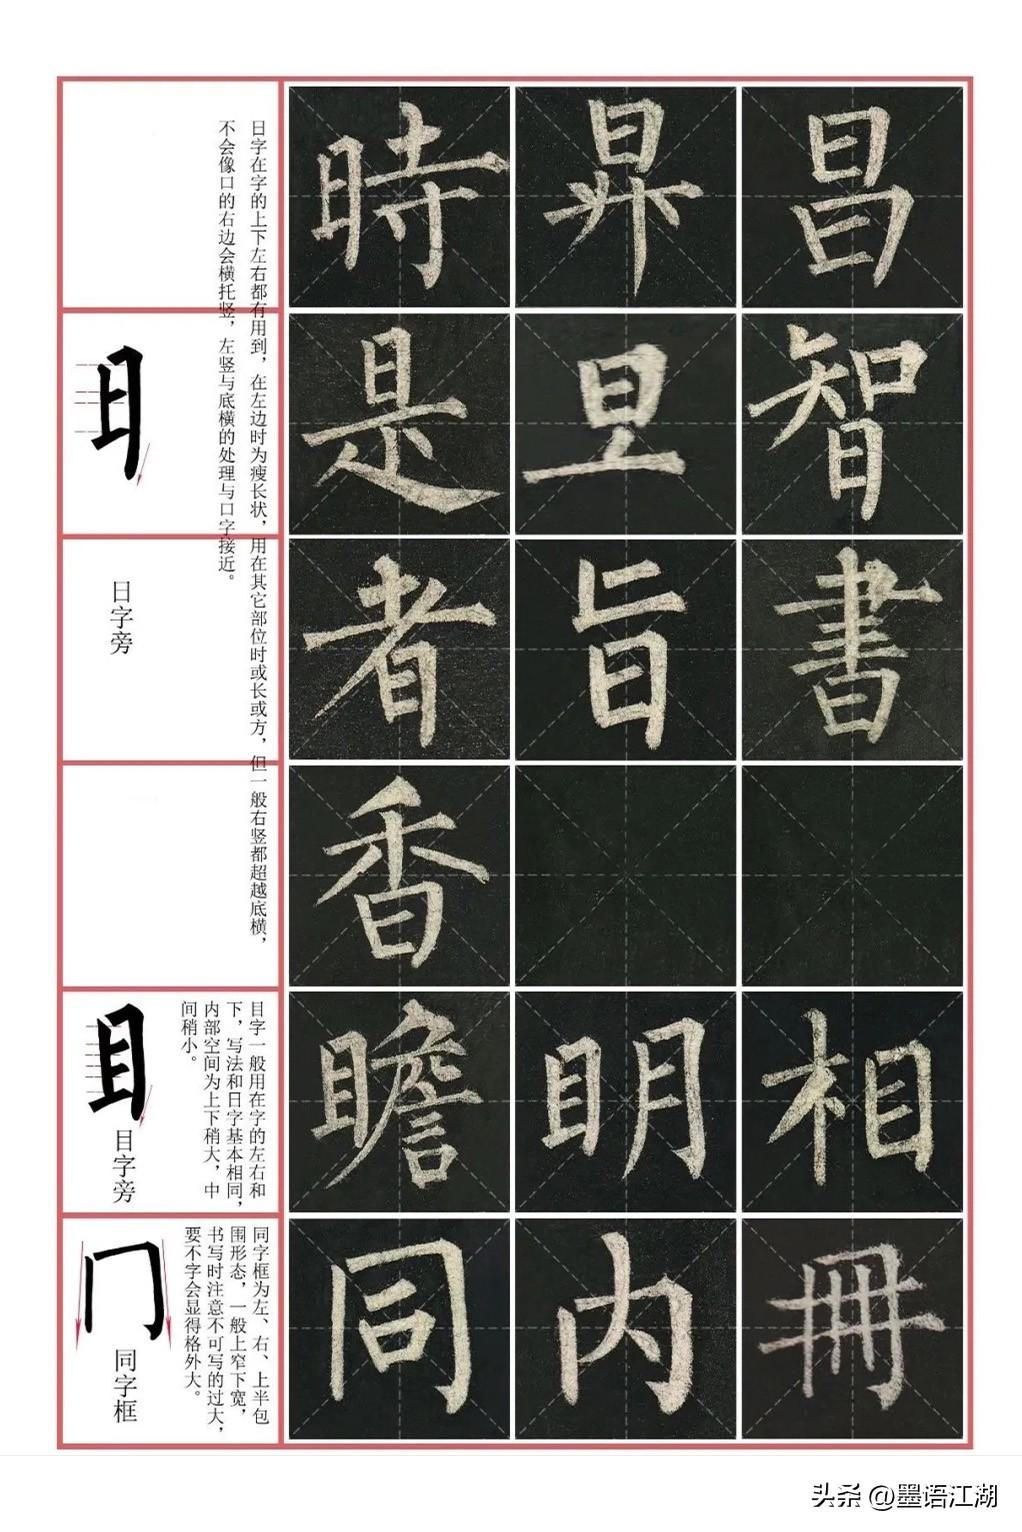 日字在字的上下左右都有用到，在左边时为瘦长状，用在其它部位时或长或方，但一般右竖都超越底横，
不会像口的右边会横托竖，左竖与底横的处理与口字接近。
時
昇
昌
是
旦
智
日字旁
者
旨
書
香
目字一般用在字的左右和
下，写法和日字基本相同，
内部空间为上下稍大，中
间稍小。
目字旁
瞻
明
相
同字框为左、右、上半包
围形态，一般上窄下宽，
书写时注意不可写的过大，
要不字会显得格外大。
同字框
同
内
冊
头条 @墨语江湖